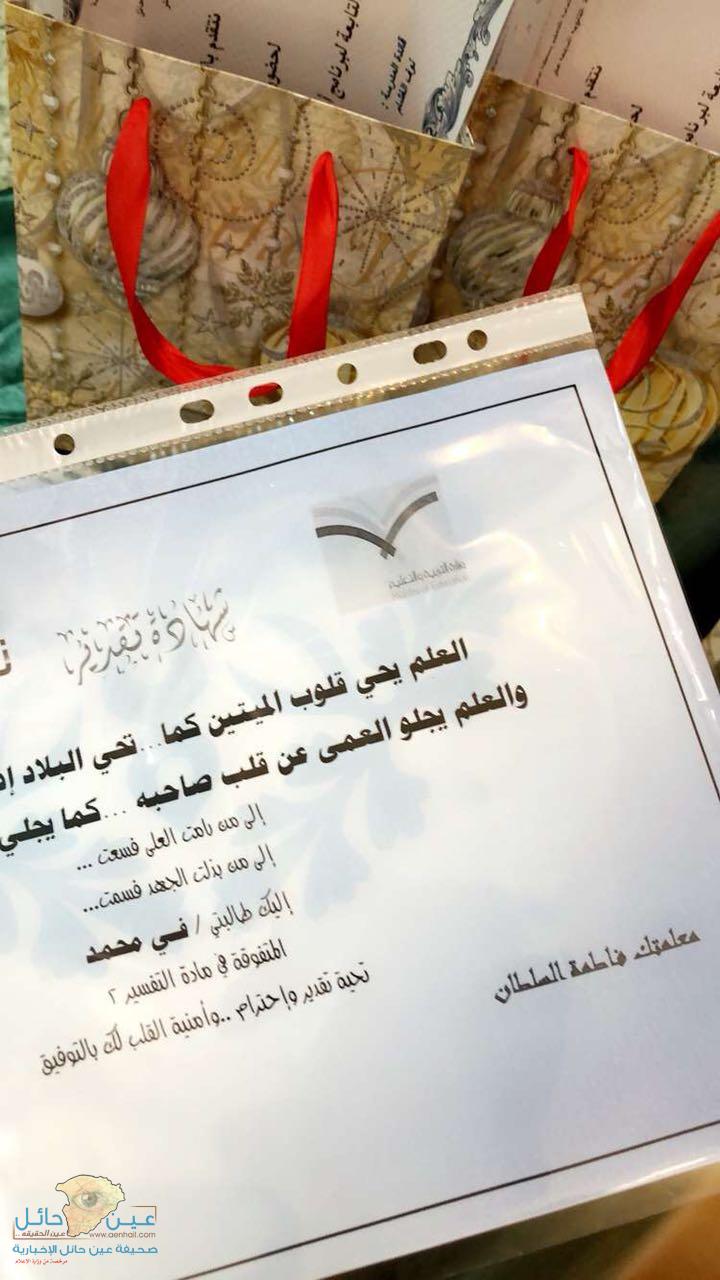 نتقدم با
لحضو
التابعة لبرنامج ا
قائدة المدرسة :
نتقدم
لحض
وزارة التربية والتعليم
Ministry of Education
شهادة تقدير
العلم يحي قلوب الميتين كما...تحي البلاد إذ
والعلم يجلو العمى عن قلب صاحبه ...كما يجلي
إلى من رامت العلى فسعت ...
إلى من بذلت الجهد فسمت...
إليك طالبتي / في محمد
المتفوقة في مادة التفسير ٢
تحية تقدير وإحترام ..وأمنية القلب لك بالتوفيق
معلمتك فاطمة السلطان
عين حائل
عين الحقيقه
www.aenhail.com
صحيفة عين حائل الإخبارية
مرخصة من وزارة الاعلام